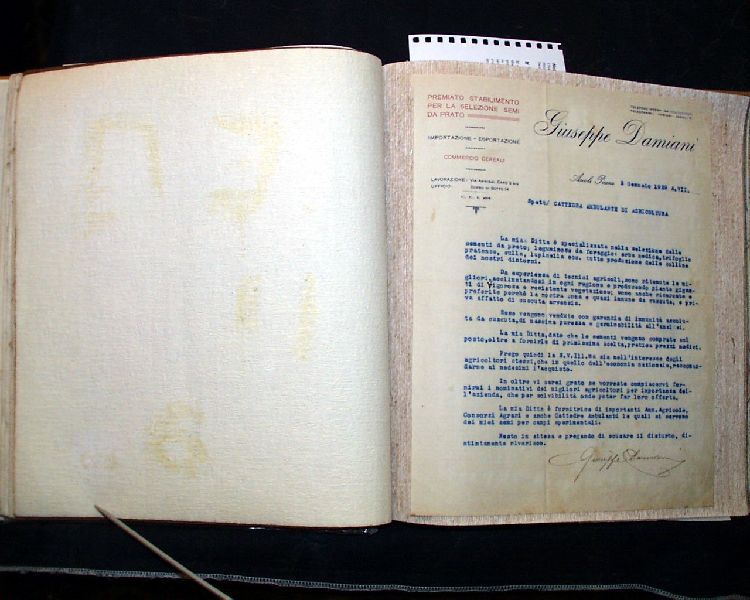 PREMIATO STABILIMENTO
PER LA SELEZIONE SEMI
DA PRATO
IMPORTAZIONE - ESPORTAZIONE
COMMERCIO CEREALI
LAVORAZIONE:
UFFICIO:
Giuseppe Damiani
Ascoli Piceno 2 Gennaio 1929 A.VII.
Spett/ CATTEDRA AMBULANTE DI AGRICOLTURA
La mia Ditta è specializzata nella selezione delle
sementi da prato, leguminose da foraggio: erba medica, trifoglio
pratense, sulla, lupinella ecc. tutte produzione delle colline
dei nostri dintorni.
Da esperienze di tecnici agricoli, sono ritenute le mi-
gliori, acclimatandosi in ogni regione e producendo piante
di vigorosa e resistente vegetazione; sono anche ricercate e
preferite perchè la nostra zona è quasi immune da cuscuta, e pri-
va affatto di cuscuta arvensis.
Esse vengono vendute con garanzia di immunità assolu-
ta da cuscuta, di massima purezza e germinabilità
La mia Ditta, dato che le sementi vengono comprate sul
posto, oltre a fornirle di primissima scelta, pratica prezzi modici.
Prego quindi la S.V.Ill.Ma sia nell'interesse degli
agricoltori stessi, che in quello dell'economia nazionale, raccoman-
darne ai medesimi l'acquisto.
In oltre vi sarei grato se vorreste compiacervi for-
nirmi i nominativi dei migliori agricoltori per importanza del-
l'azienda, che per solvibilità onde poter far loro offerta.
La mia Ditta è fornitrice di importanti Ass. Agricole,
Consorzi Agrari e anche Cattedre Ambulanti le quali si servono
dei miei semi per campi sperimentali.
Resto in attesa e pregando di scusare il disturbo, di-
stintamente riverisco.
Giuseppe Damiani